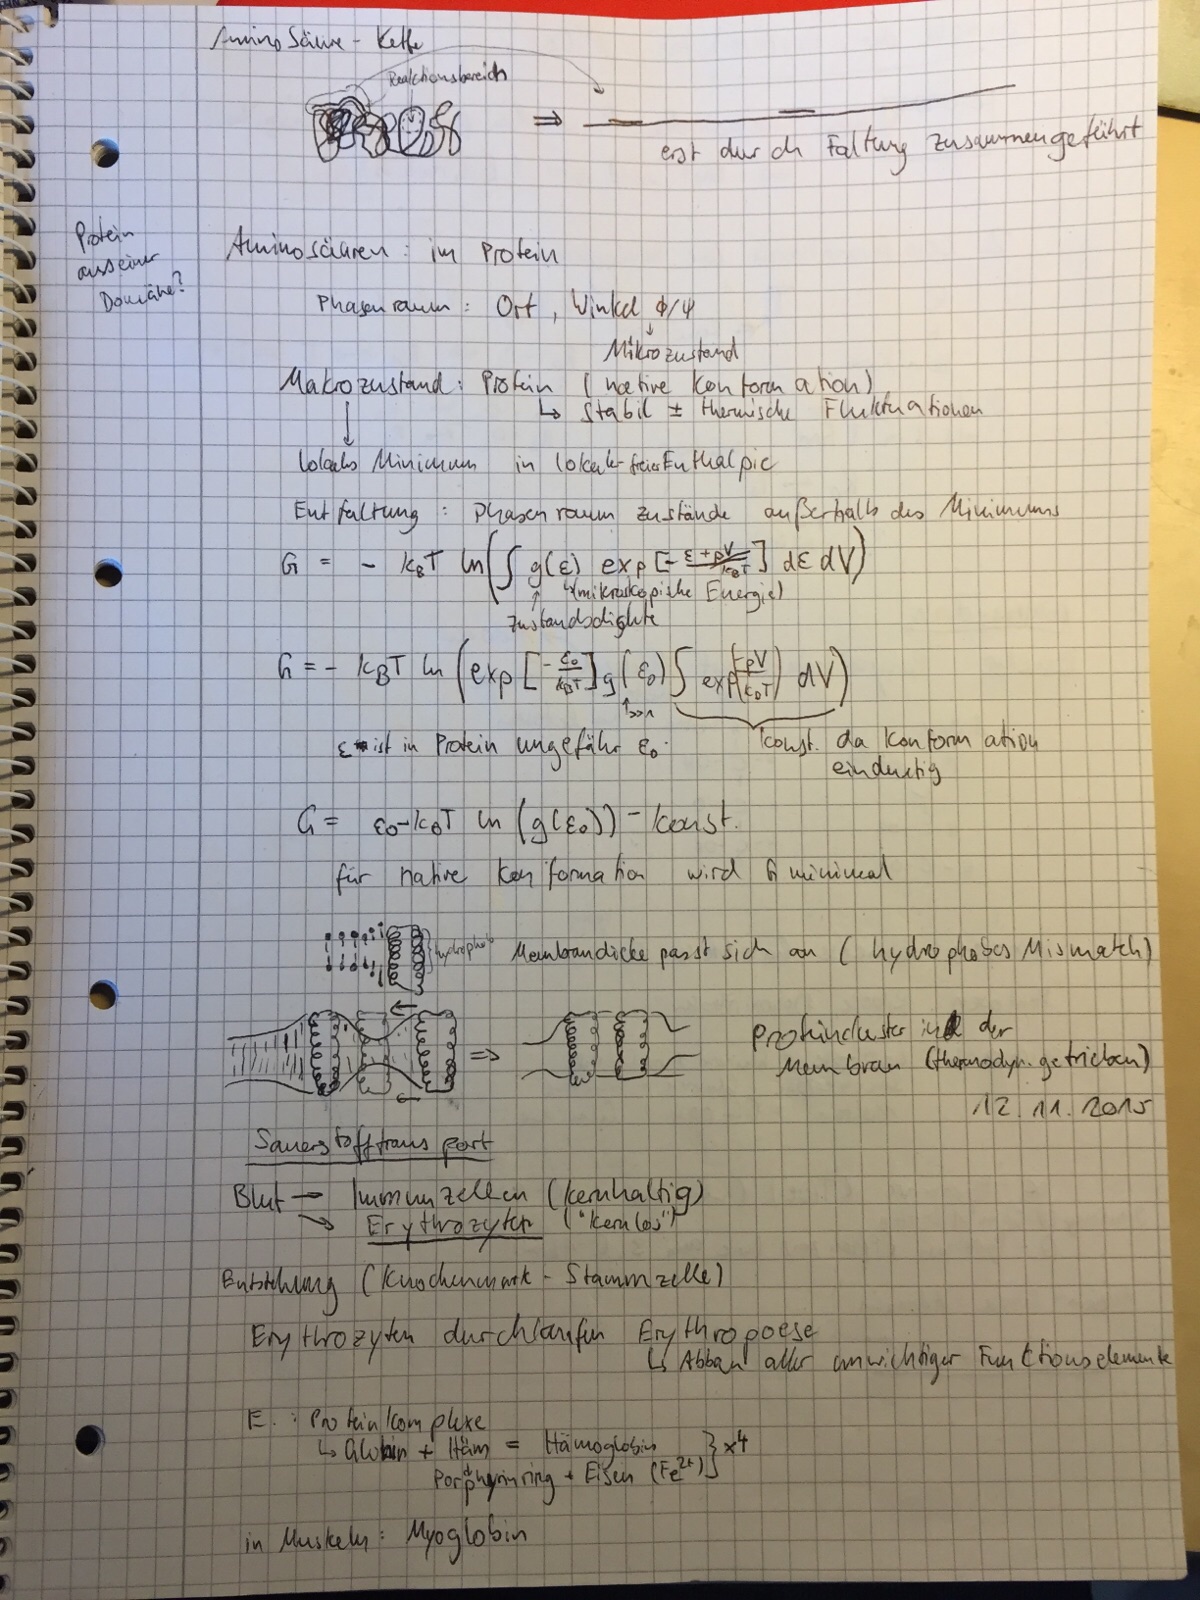 Aminosäure-Kette
Reaktionsbereich
⇒
erst durch Faltung zusammengeführt
Protein
aus einer
Domäne?
Aminosäuren: im Protein
Phasenraum: Ort, Winkel ϕ/ψ
↓
Mikrozustand
Makrozustand: Protein (native Konformation)
↳ Stabil ± thermische Fluktuationen
↓
lokales Minimum in lokaler freier Enthalpie
Entfaltung: Phasenraumzustände außerhalb des Minimums
G = - k_BT ln(∫ g(ε) exp[-(ε+pV)/(k_BT)] dε dV)
↑ (mikroskopische Energie)
Zustandsdichte
G = - k_BT ln(exp[-ε₀/(k_BT)] g(ε₀) ∫ exp(-pV/(k_BT)) dV)
↑>>1
ε ist in Protein ungefähr ε₀. konst. da Konformation
eindeutig
G = ε₀-k_BT ln(g(ε₀)) - konst.
für native Konformation wird G minimal
}hydrophob Membrandicke passt sich an (hydrophobes Mismatch)
⇒ Proteincluster in der
Membran (thermodyn. getrieben)
12.11.2015
Sauerstofftransport
Blut → Immunzellen (kernhaltig)
→ Erythrozyten ("kernlos")
Entstehung (Knochenmark-Stammzelle)
Erythrozyten durchlaufen Erythropoese
↳ Abbau aller unwichtiger Funktionselemente
E.: Proteinkomplexe
↳ Globin + Häm = Hämoglobin } x4
Porphyrinring + Eisen (Fe²⁺)
in Muskeln: Myoglobin